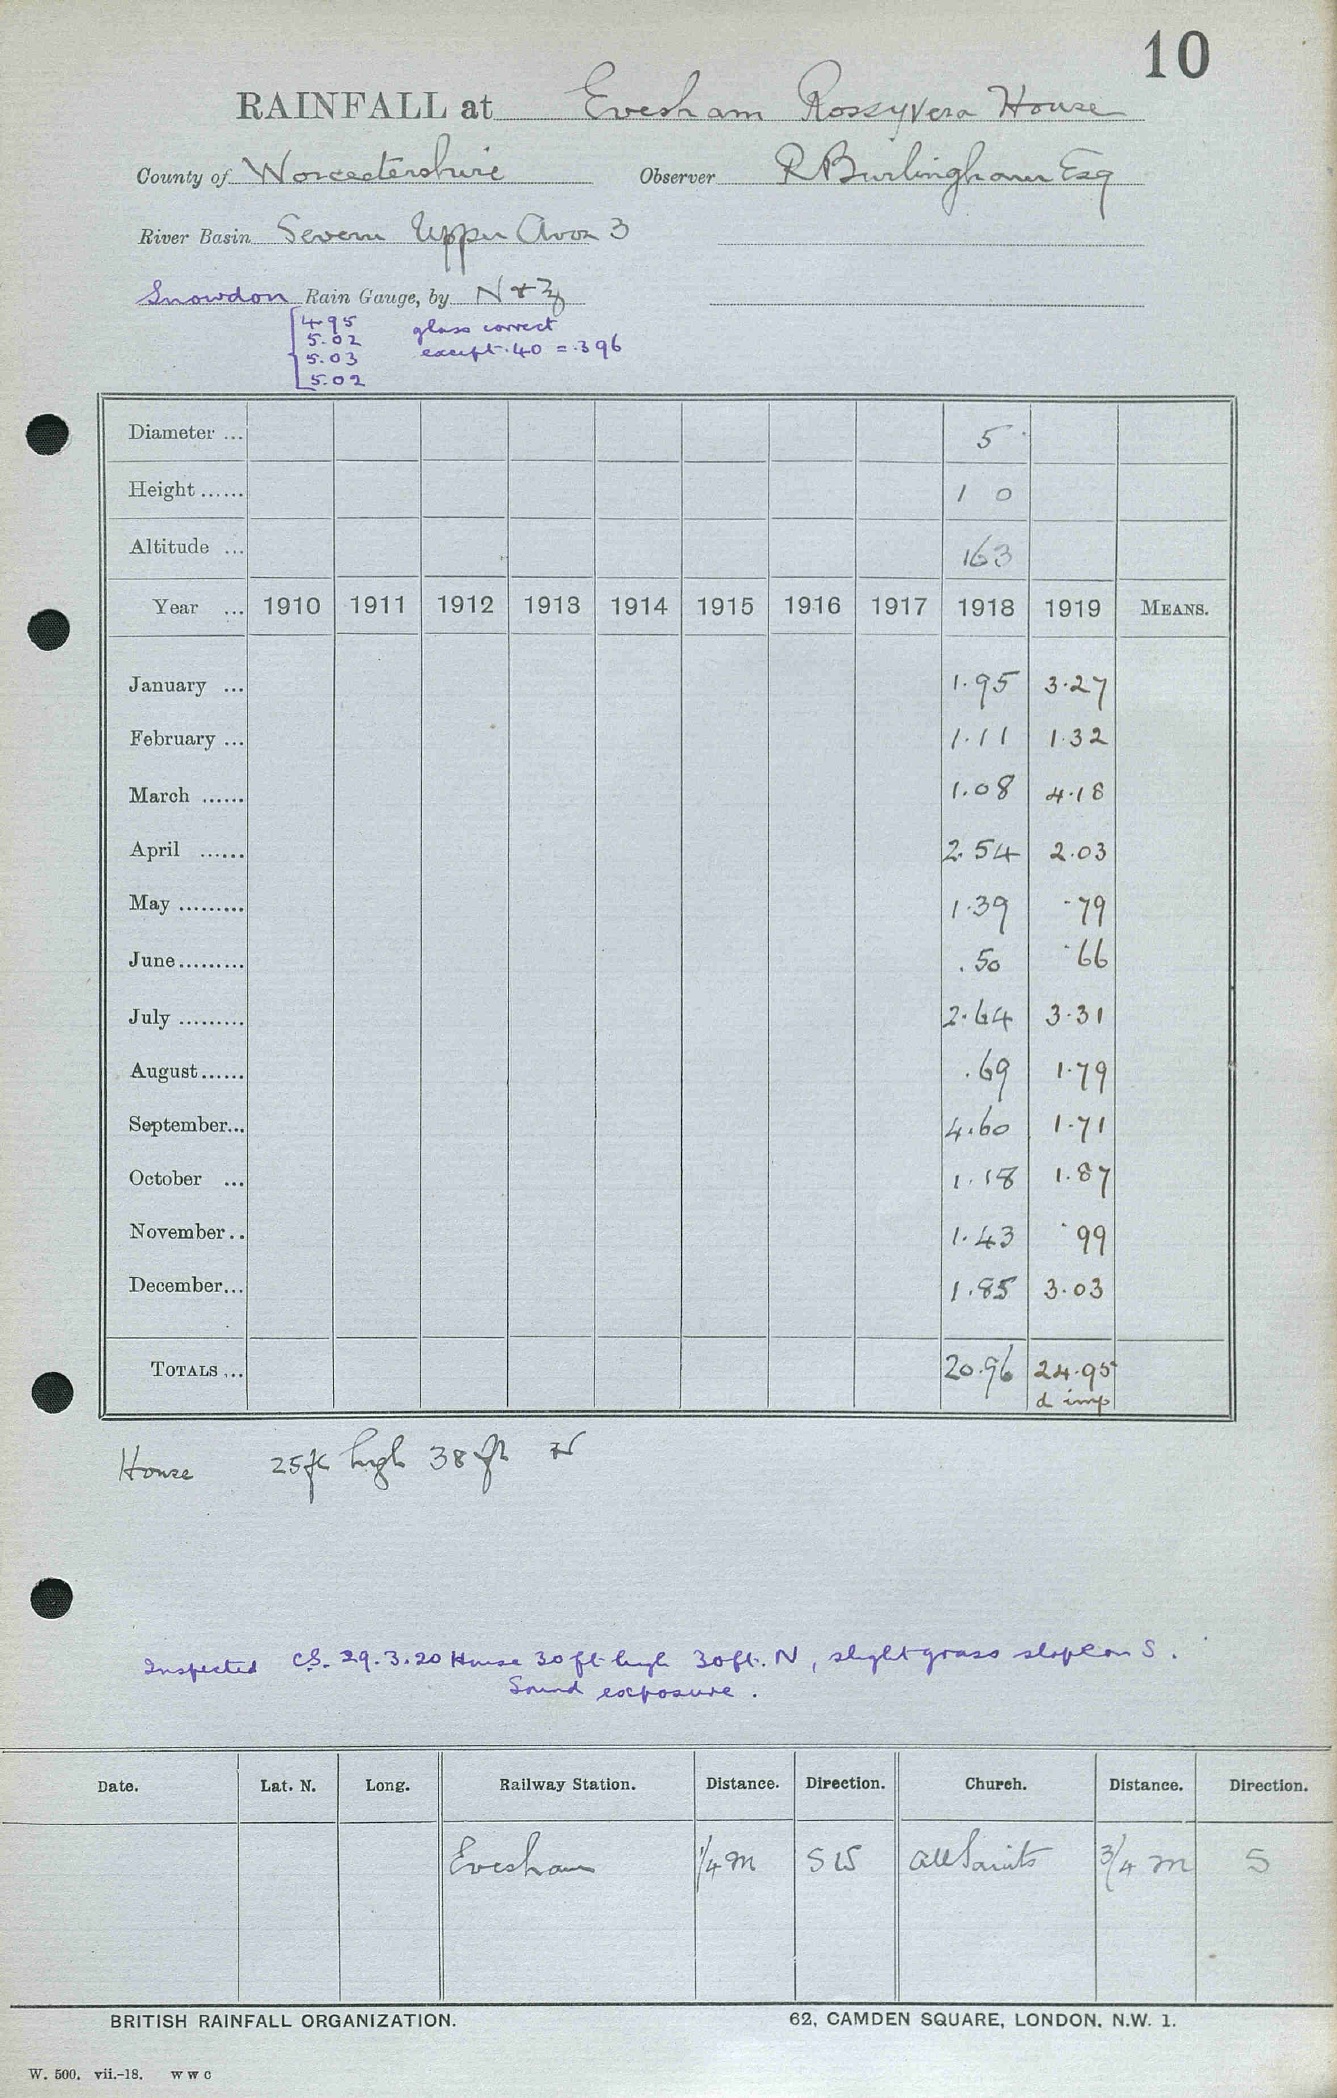 10
RAINFALL at Evesham Rossyvera House
County of Worcestershire Observer R Burlingham Esq
River Basin Severn Upper Avon 3
Snowdon Rain Gauge, by N & Z
4.95 glass correct
5.02 except .40 = .396
5.03
5.02
Diameter ... 5
Height ...... 1 0
Altitude ... 163
Year ... 1910 1911 1912 1913 1914 1915 1916 1917 1918 1919 MEANS.
January ... 1.95 3.27
February ... 1.11 1.32
March ...... 1.08 4.18
April ...... 2.54 2.03
May ......... 1.39 .79
June ......... .50 .66
July ......... 2.64 3.31
August ...... .69 1.79
September... 4.60 1.71
October ... 1.18 1.87
November.. 1.43 .99
December... 1.85 3.03
TOTALS ... 20.96 24.95
d imp
House 25ft high 38 ft N
Inspected C.S. 29.3.20 House 30 ft high 30 ft. N, slight grass slope on S.
Sound exposure.
Date. Lat. N. Long. Railway Station. Distance. Direction. Church. Distance. Direction.
Evesham 1/4 m SW All Saints 3/4 m S
BRITISH RAINFALL ORGANIZATION. 62, CAMDEN SQUARE, LONDON, N.W. 1.
W. 500. vii.-18. W W C